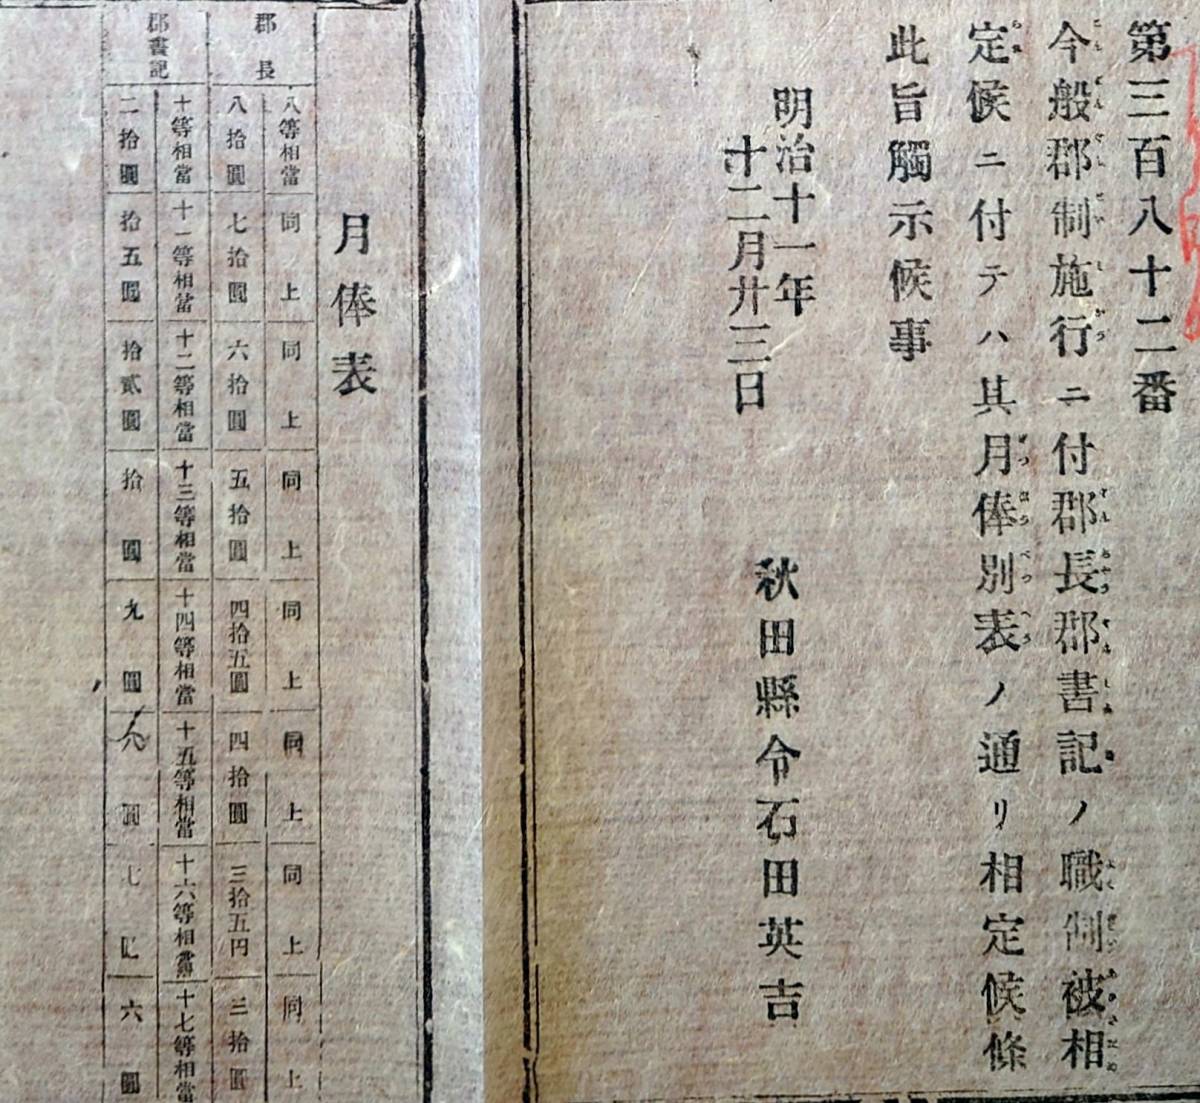 第三百八十二番
今般郡制施行ニ付郡長郡書記ノ職制被相
定候ニ付テハ其月俸別表ノ通リ相定候條
此旨觸示候事
明治十一年
十二月廿三日
秋田縣令石田英吉
月俸表
郡長
八等相當 同上 同上 同上 同上 同上 同上 同上
八拾圓 七拾圓 六拾圓 五拾圓 四拾五圓 四拾圓 三拾五円 三拾圓
郡書記
十等相當 十一等相當 十二等相當 十三等相當 十四等相當 十五等相當 十六等相當 十七等相當
二拾圓 拾五圓 拾貳圓 拾圓 九圓 八圓 七圓 六圓